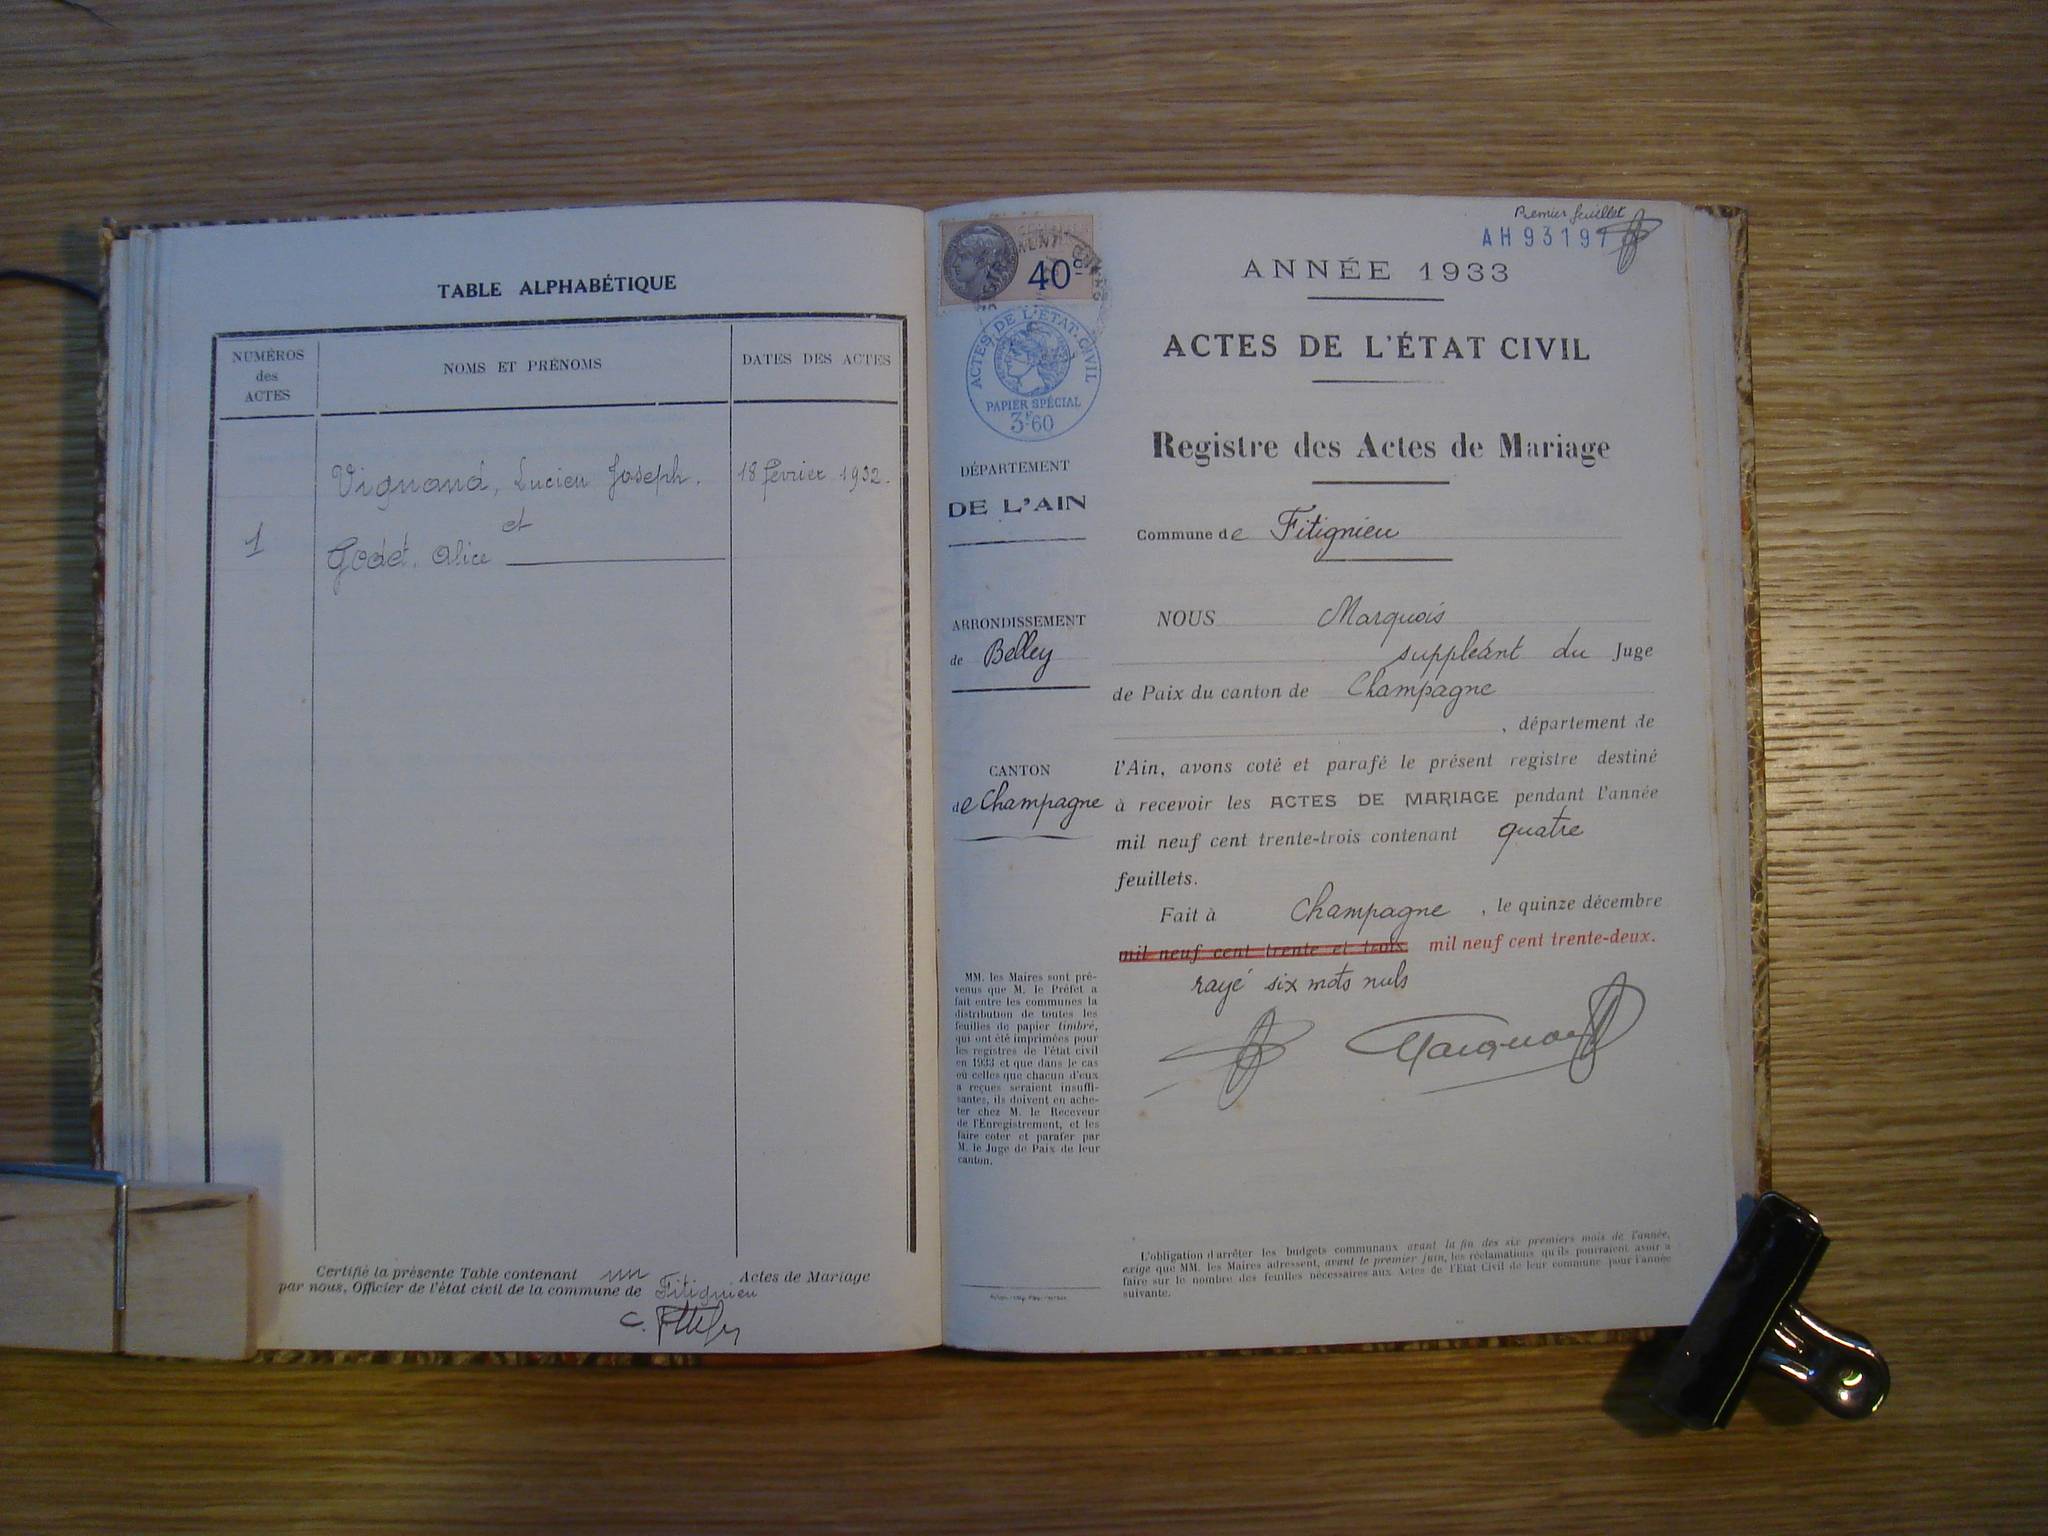 TABLE ALPHABÉTIQUE
NUMÉROS
des
ACTES
NOMS ET PRÉNOMS
DATES DES ACTES
Vignand, Lucien Joseph.
18 février 1932.
et
1
Godet, Alice
Certifié la présente Table contenant un Actes de Mariage
par nous, Officier de l'état civil de la commune de Fitignieu
Premier feuillet
AH 93197
40c
ACTES DE L'ÉTAT CIVIL
PAPIER SPÉCIAL
3F60
ANNÉE 1933
ACTES DE L'ÉTAT CIVIL
Registre des Actes de Mariage
DÉPARTEMENT
DE L'AIN
Commune de Fitignieu
ARRONDISSEMENT
de Belley
CANTON
de Champagne
NOUS Marquois
suppléant du Juge
de Paix du canton de Champagne
, département de
l'Ain, avons coté et parafé le présent registre destiné
à recevoir les ACTES DE MARIAGE pendant l'année
mil neuf cent trente-trois contenant quatre
feuillets.
Fait à Champagne, le quinze décembre
mil neuf cent trente et trois mil neuf cent trente-deux.
rayé six mots nuls
MM. les Maires sont pré-
venus que M. le Préfet a
fait entre les communes la
distribution de toutes les
feuilles de papier timbré,
qui ont été imprimées pour
les registres de l'état civil
en 1933 et que dans le cas
où celles que chacun d'eux
a reçues seraient insuffi-
santes, ils doivent en ache-
ter chez M. le Receveur
de l'Enregistrement, et les
faire coter et parafer par
M. le Juge de Paix de leur
canton.
L'obligation d'arrêter les budgets communaux avant la fin des six premiers mois de l'année,
exige que MM. les Maires adressent, avant le premier juin, les réclamations qu'ils pourraient avoir à
faire sur le nombre des feuilles nécessaires aux Actes de l'État Civil de leur commune pour l'année
suivante.